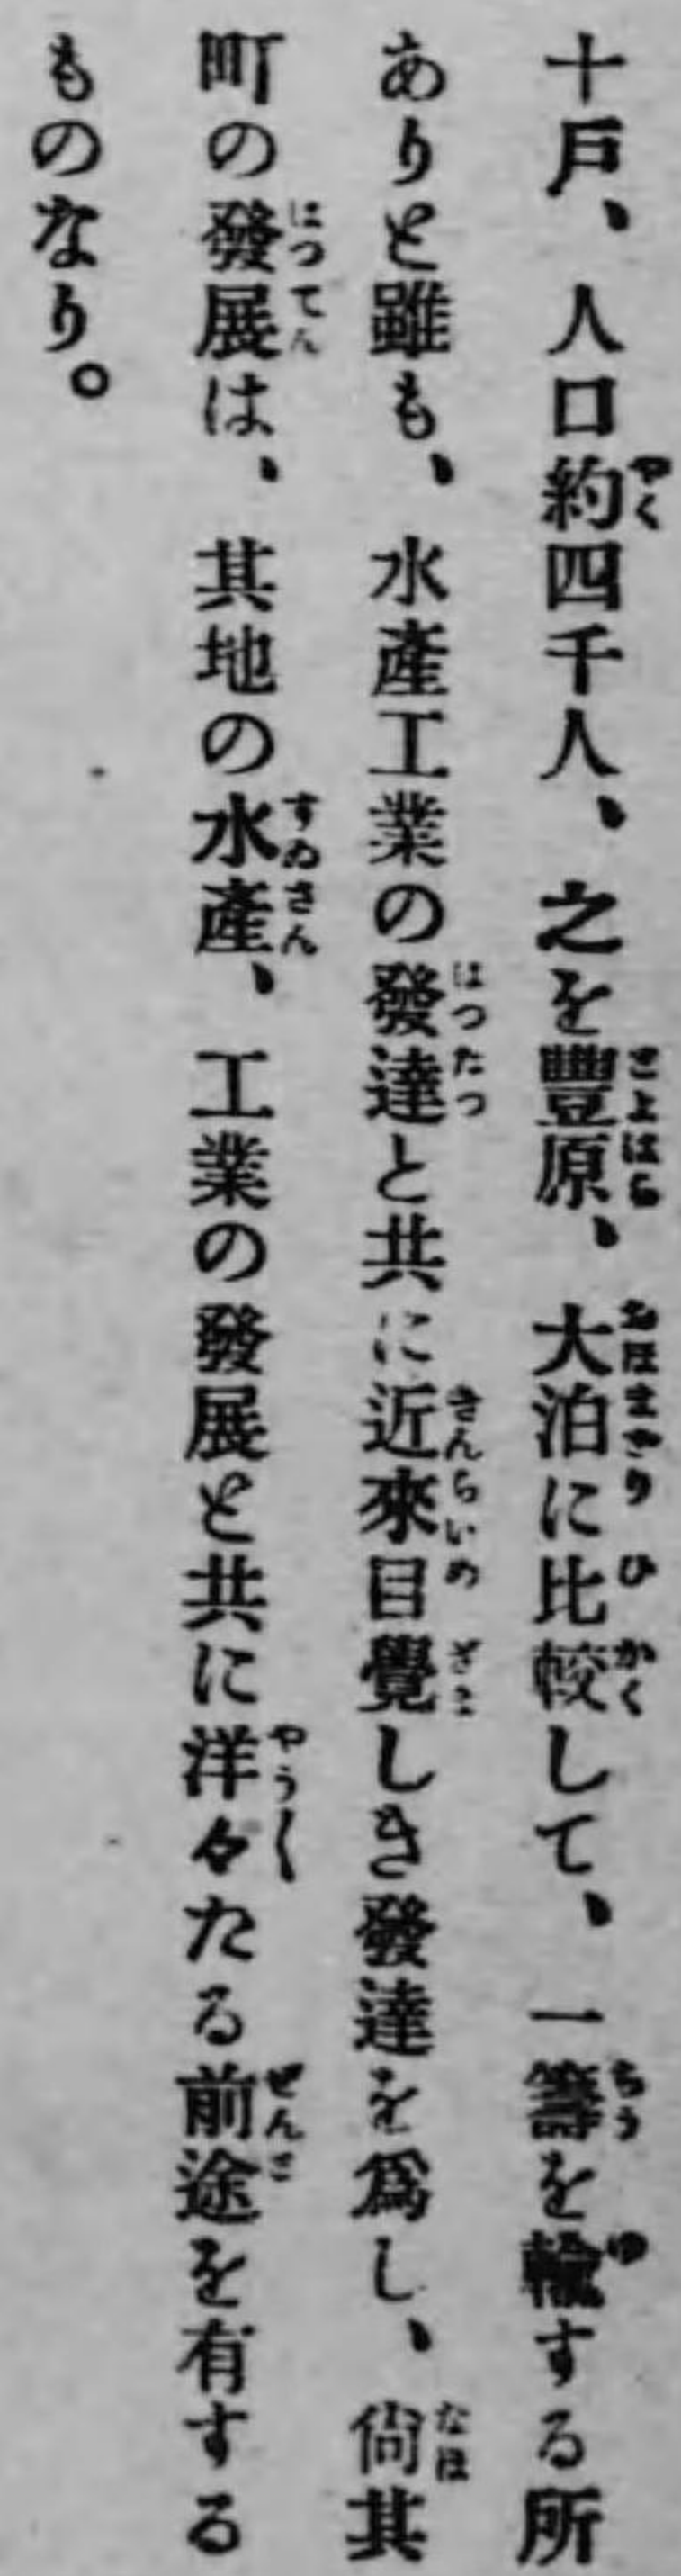 十戶、人口約四千人、之を豐原、大泊に比較して、一籌を輸する所
ありと雖も、水產工業の發達と共に近來目覺しき發達を爲し、尙其
町の發展は、其地の水產、工業の發展と共に洋々たる前途を有する
ものなり。